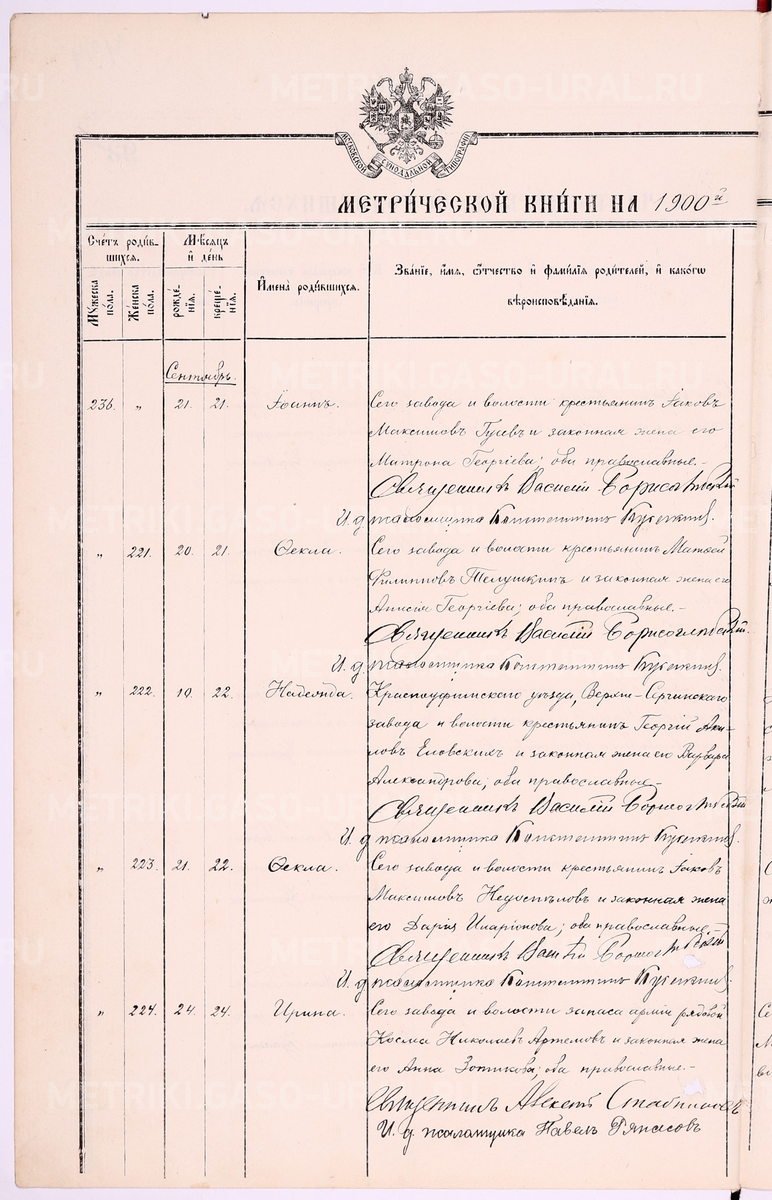 МОСКОВСКОЙ СѴНОДАЛЬНОЙ ТИПОГРАФІИ
МЕТРИ́ЧЕСКОЙ КНИ́ГИ НА 1900й
Сче́тъ роди́в-
шихся.
Мѣ́сяцъ
и҆ де́нь
И҆мена̀ роди́вшихся.
Зва́нїе, и҆́мя, ѻ҆́тчество и҆ фами́лїя роди́телей, и҆ како́гѡ
вѣроисповѣ́данїя.
Му́жеска по́ла.
Же́нска по́ла.
рожде́нїя.
креще́нїя.
Сентябрь.
236. „ 21. 21. Іоаннъ. Сего завода и волости крестьянинъ Іаковъ
Максимовъ Гусевъ и законная жена его
Матрона Георгіева; оба православные.-
Священникъ Василій Борисоглѣбскій
И. д. псаломщика Константинъ
„ 221. 20. 21. Ѳекла. Сего завода и волости крестьянинъ Матѳей
Филипповъ Телушкинъ и законная жена его
Анисія Георгіева; оба православные.-
Священникъ Василій Борисоглѣбскій.
И. д. псаломщика Константинъ
„ 222. 19. 22. Надежда. Красноуфимскаго уѣзда, Верхн-Сергинскаго
завода и волости крестьянинъ Георгій
Еловскихъ и законная жена его Варвара
Александрова; оба православные.-
Священникъ Василій Борисоглѣбскій
И. д. псаломщика Константинъ
„ 223. 21. 22. Ѳекла. Сего завода и волости крестьянинъ Іаковъ
Максимовъ Недоспѣловъ и законная жена
его Дарія Иларіонова; оба православные.-
Священникъ Василій Борисоглѣбскій
И. д. псаломщика Константинъ
„ 224. 24. 24. Ирина. Сего завода и волости запаса арміи рядовой
Косма Николаевъ Артемовъ и законная жена
его Анна Зотикова; оба православные.-
Священникъ Алексѣй
И. д. псаломщика Павелъ
METRIKI.GASO-URAL.RU